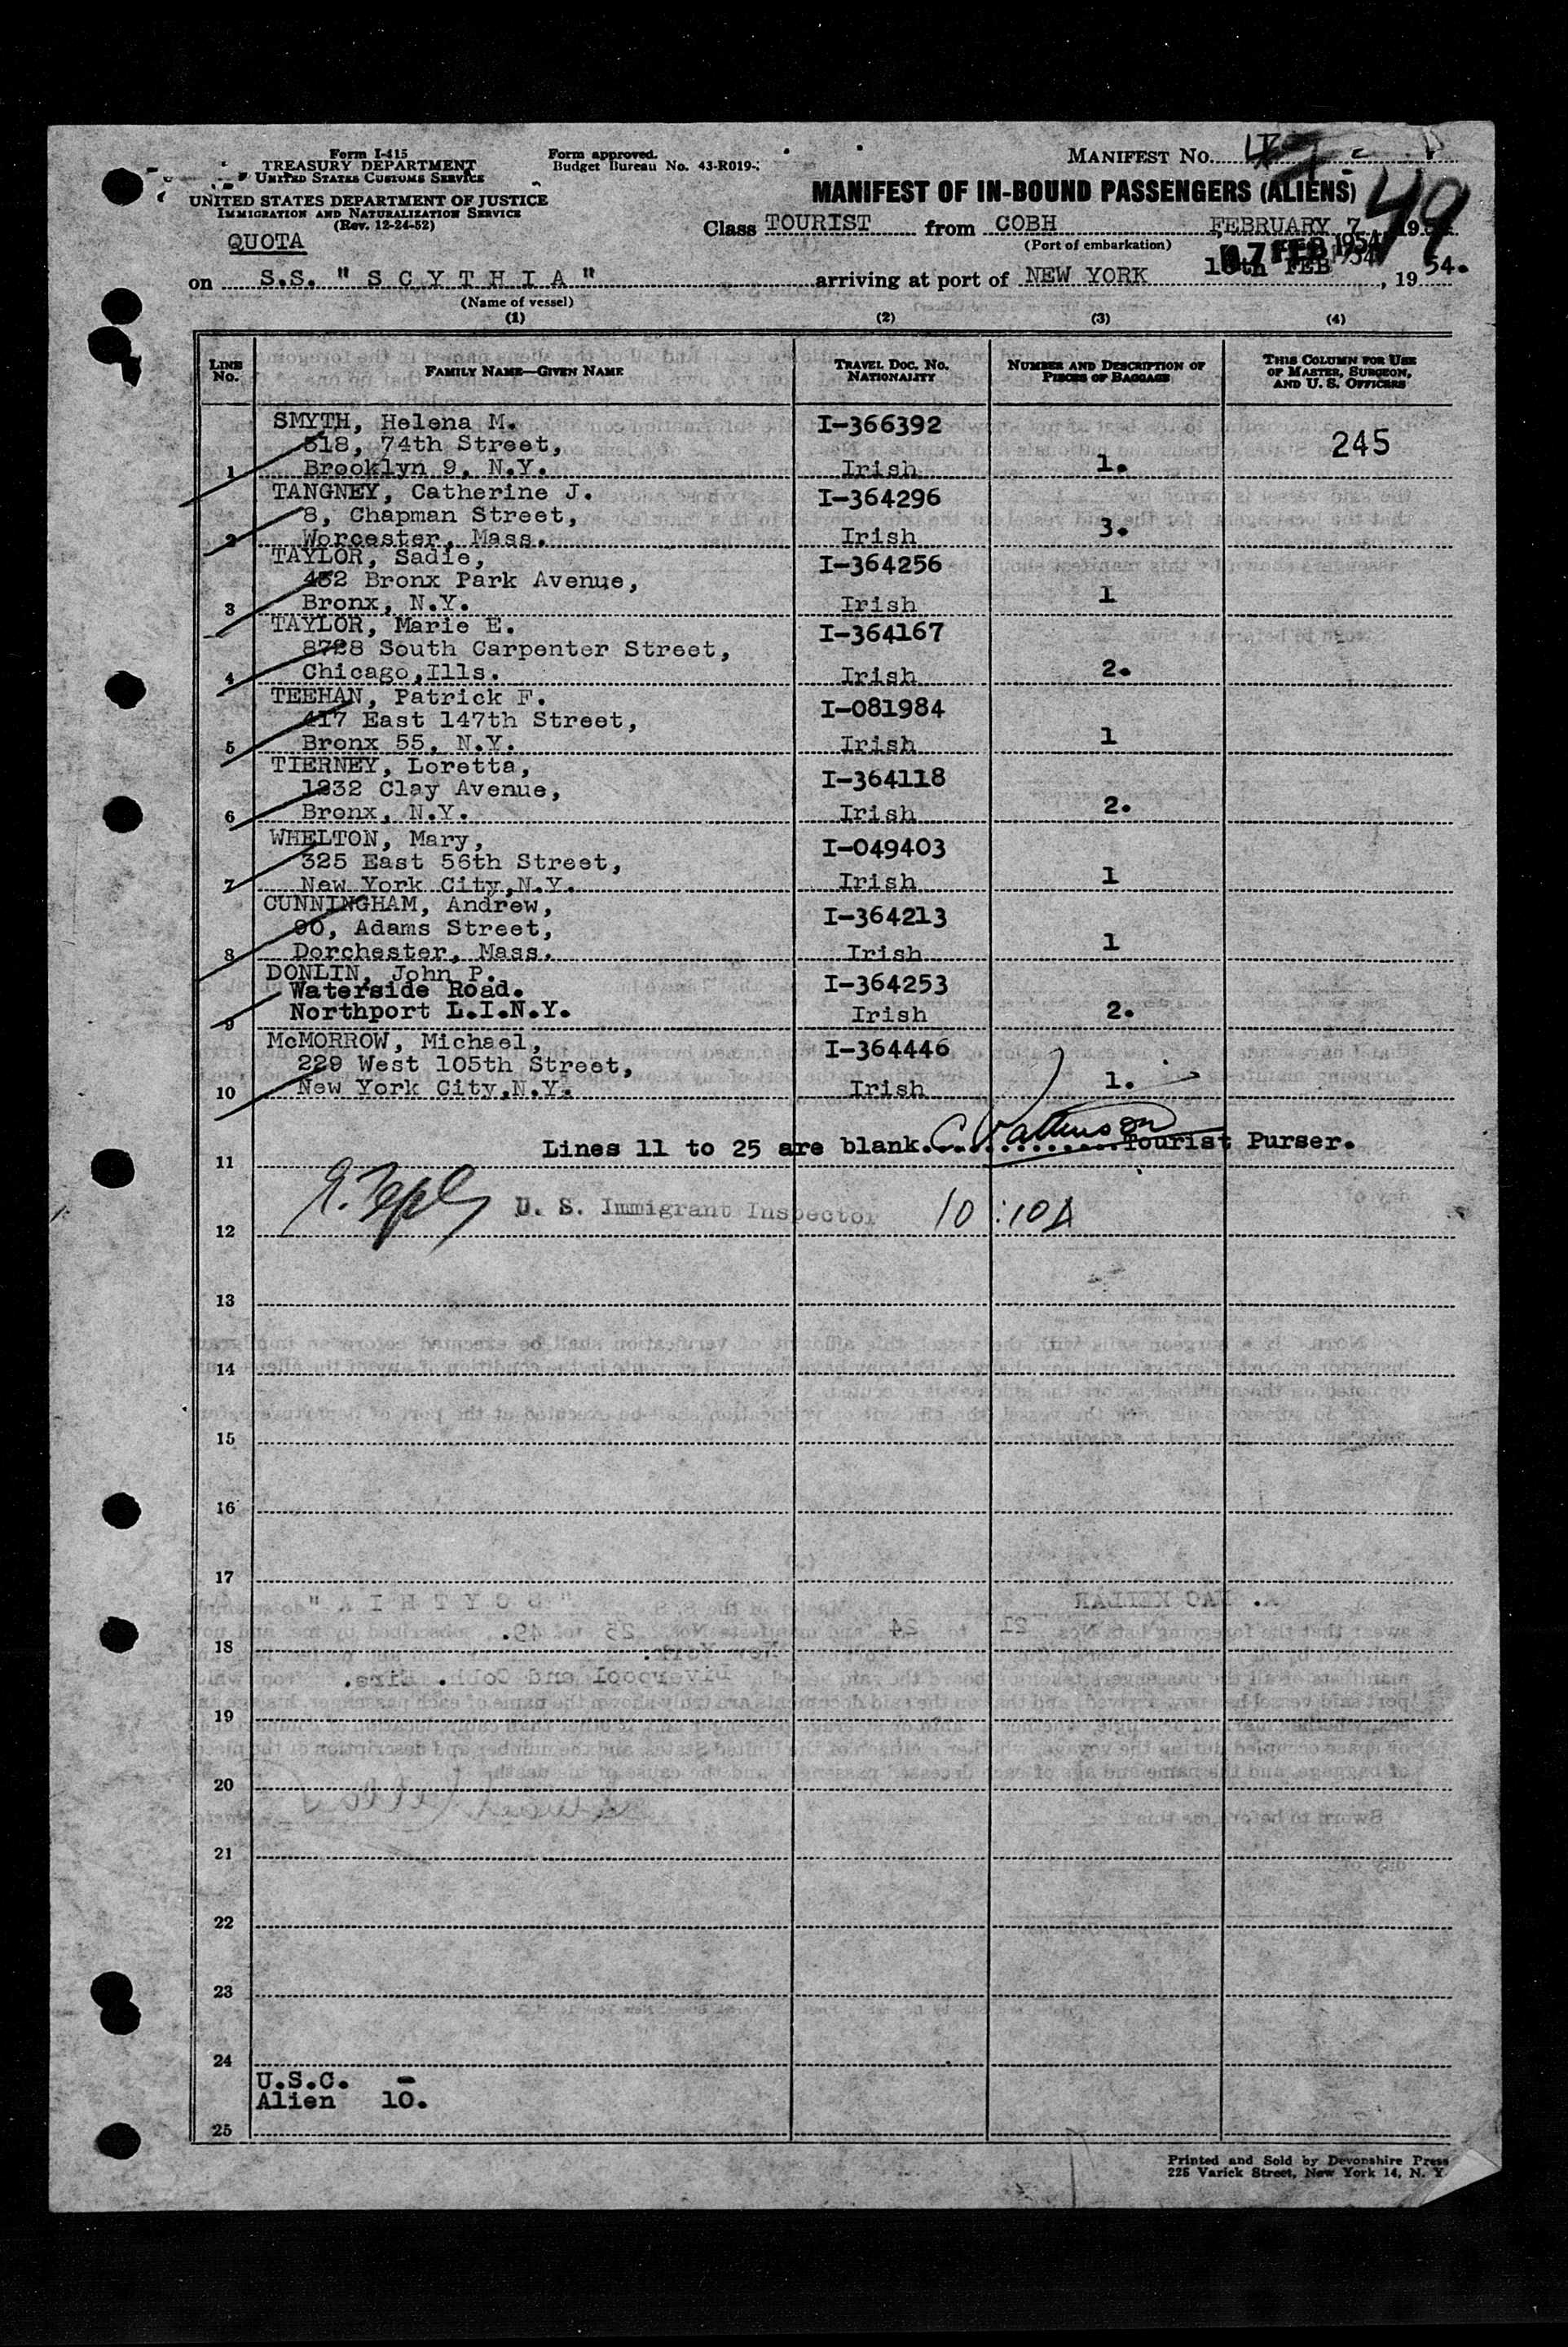 Form I-415
TREASURY DEPARTMENT
UNITED STATES CUSTOMS SERVICE
UNITED STATES DEPARTMENT OF JUSTICE
IMMIGRATION AND NATURALIZATION SERVICE
(Rev. 12-24-52)
QUOTA
Form approved.
Budget Bureau No. 43-R019-
MANIFEST NO.
49
MANIFEST OF IN-BOUND PASSENGERS (ALIENS)
Class TOURIST from COBH FEBRUARY 7 19
(Port of embarkation)
7 FEB 1954
on S.S. "SCYTHIA" arriving at port of NEW YORK FEB, 1954.
(Name of vessel)
(1) (2) (3) (4)
LINE No. FAMILY NAME—GIVEN NAME TRAVEL DOC. NO. NATIONALITY NUMBER AND DESCRIPTION OF PIECES OF BAGGAGE THIS COLUMN FOR USE OF MASTER, SURGEON, AND U. S. OFFICERS
SMYTH, Helena M. I-366392
518, 74th Street, 245
1 Brooklyn 9, N.Y. Irish 1.
TANGNEY, Catherine J. I-364296
8, Chapman Street,
2 Worcester, Mass. Irish 3.
TAYLOR, Sadie, I-364256
432 Bronx Park Avenue,
3 Bronx, N.Y. Irish 1
TAYLOR, Marie E. I-364167
8728 South Carpenter Street,
4 Chicago,Ills. Irish 2.
TEEHAN, Patrick F. I-081984
417 East 147th Street,
5 Bronx 55, N.Y. Irish 1
TIERNEY, Loretta, I-364118
1232 Clay Avenue,
6 Bronx, N.Y. Irish 2.
WHELTON, Mary, I-049403
325 East 56th Street,
7 New York City,N.Y. Irish 1
CUNNINGHAM, Andrew, I-364213
90, Adams Street,
8 Dorchester, Mass. Irish 1
DONLIN, John P. I-364253
Waterside Road.
9 Northport L.I.N.Y. Irish 2.
McMORROW, Michael, I-364446
229 West 105th Street,
10 New York City,N.Y. Irish 1.
Lines 11 to 25 are blank. Tourist Purser.
11
U. S. Immigrant Inspector 10:10A
12
13
14
15
16
17
18
19
20
21
22
23
24
U.S.C. -
Alien 10.
25
Printed and Sold by Devonshire Press
225 Varick Street, New York 14, N. Y.